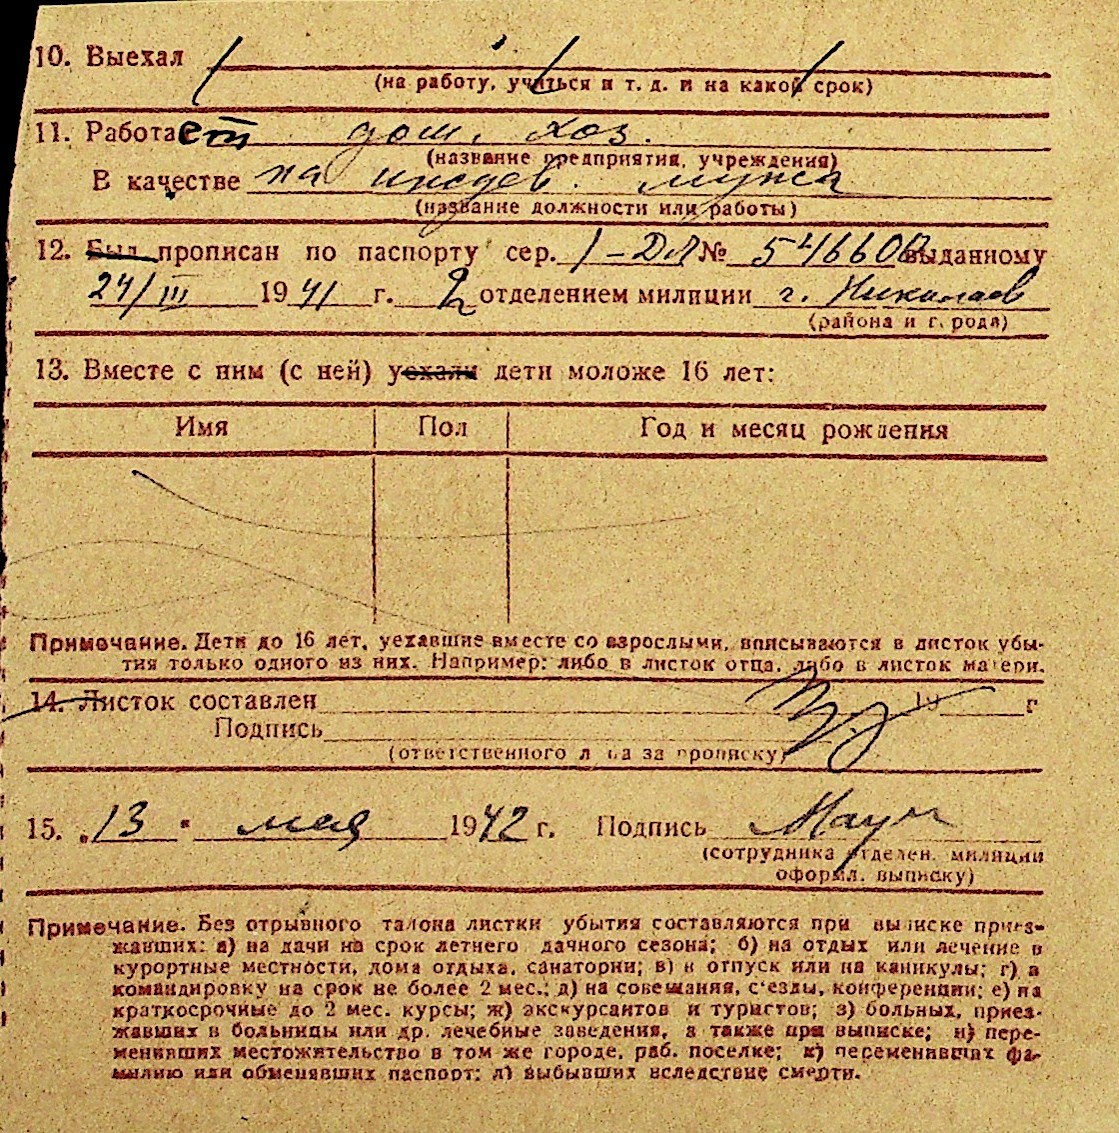 10. Выехал
(на работу, учиться и т. д. и на какой срок)
11. Работает дом. хоз.
(название предприятия, учреждения)
В качестве на иждев. мужа
(название должности или работы)
12. Был прописан по паспорту сер. I-ДЛ № 546600 выданному
24/III 1941 г. 2 отделением милиции г. Николаев
(района и города)
13. Вместе с ним (с ней) уехали дети моложе 16 лет:
Имя Пол Год и месяц рождения
Примечание. Дети до 16 лет, уехавшие вместе со взрослыми, вписываются в листок убы-
тия только одного из них. Например: либо в листок отца, либо в листок матери.
14. Листок составлен 19 г
Подпись
(ответственного лица за прописку)
15. „13" мая 1942 г. Подпись
(сотрудника отделен. милиции
оформл. выписку)
Примечание. Без отрывного талона листки убытия составляются при выписке приез-
жавших: а) на дачи на срок летнего дачного сезона; б) на отдых или лечение в
курортные местности, дома отдыха, санатории; в) в отпуск или на каникулы; г) в
командировку на срок не более 2 мес.; д) на совещания, с'езды, конференции; е) на
краткосрочные до 2 мес. курсы; ж) экскурсантов и туристов; з) больных, приез-
жавших в больницы или др. лечебные заведения, а также при выписке; и) пере-
менивших местожительство в том же городе, раб. поселке; к) переменивших фа-
милию или обменявших паспорт; л) выбывших вследствие смерти.